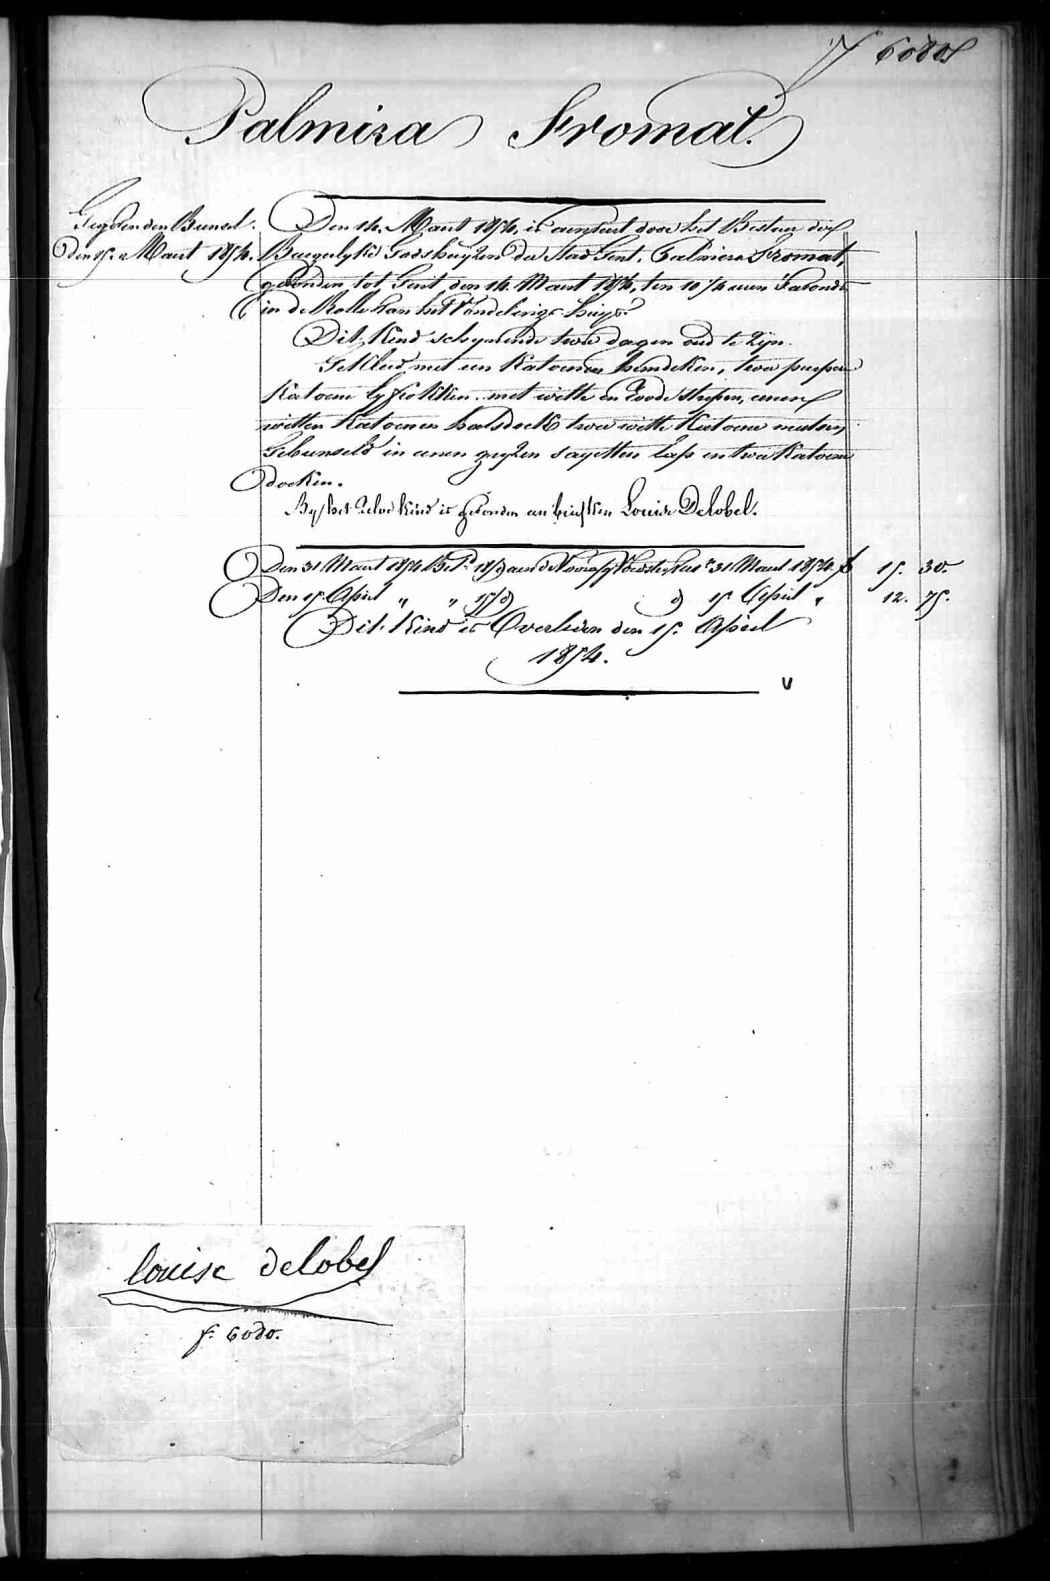 f 6080
Palmira Fromat.
Gegeven den Bunsel.
Den 15. Maart 1854.
Den 14. Maart 1854, is aenveerd door het Bestuer der
Burgerlyke Godshuyzen der Stad Gent, Palmira Fromat,
gevonden tot Gent, den 14. Maart 1854, ten 10 1/4 uren s'avonds
in de Rolle van het Vondelings-huys.
Dit kind schynende twee dagen oud te zyn.
Gekleed met een katoenen hemdeken, twee purper
katoene lyfrokken met witte en roode stepen, eenen
witten katoenen halsdoek twee witte katoene mutsen,
Gebunseld in eenen gryzen sayetten lap en twee katoene
doeken.
By het zelve kind is gevonden een briefken Louise Delobel.
Den 31 Maart 1854 Bet. 18/d aen de Voorzg. Voedster, tot 31 Maart 1854. f 15. 30.
Den 15. April " " 15/d d 15 April " 12. 75.
Dit kind is Overleden den 15. April
1854.
v
louise delobel
f. 6080.